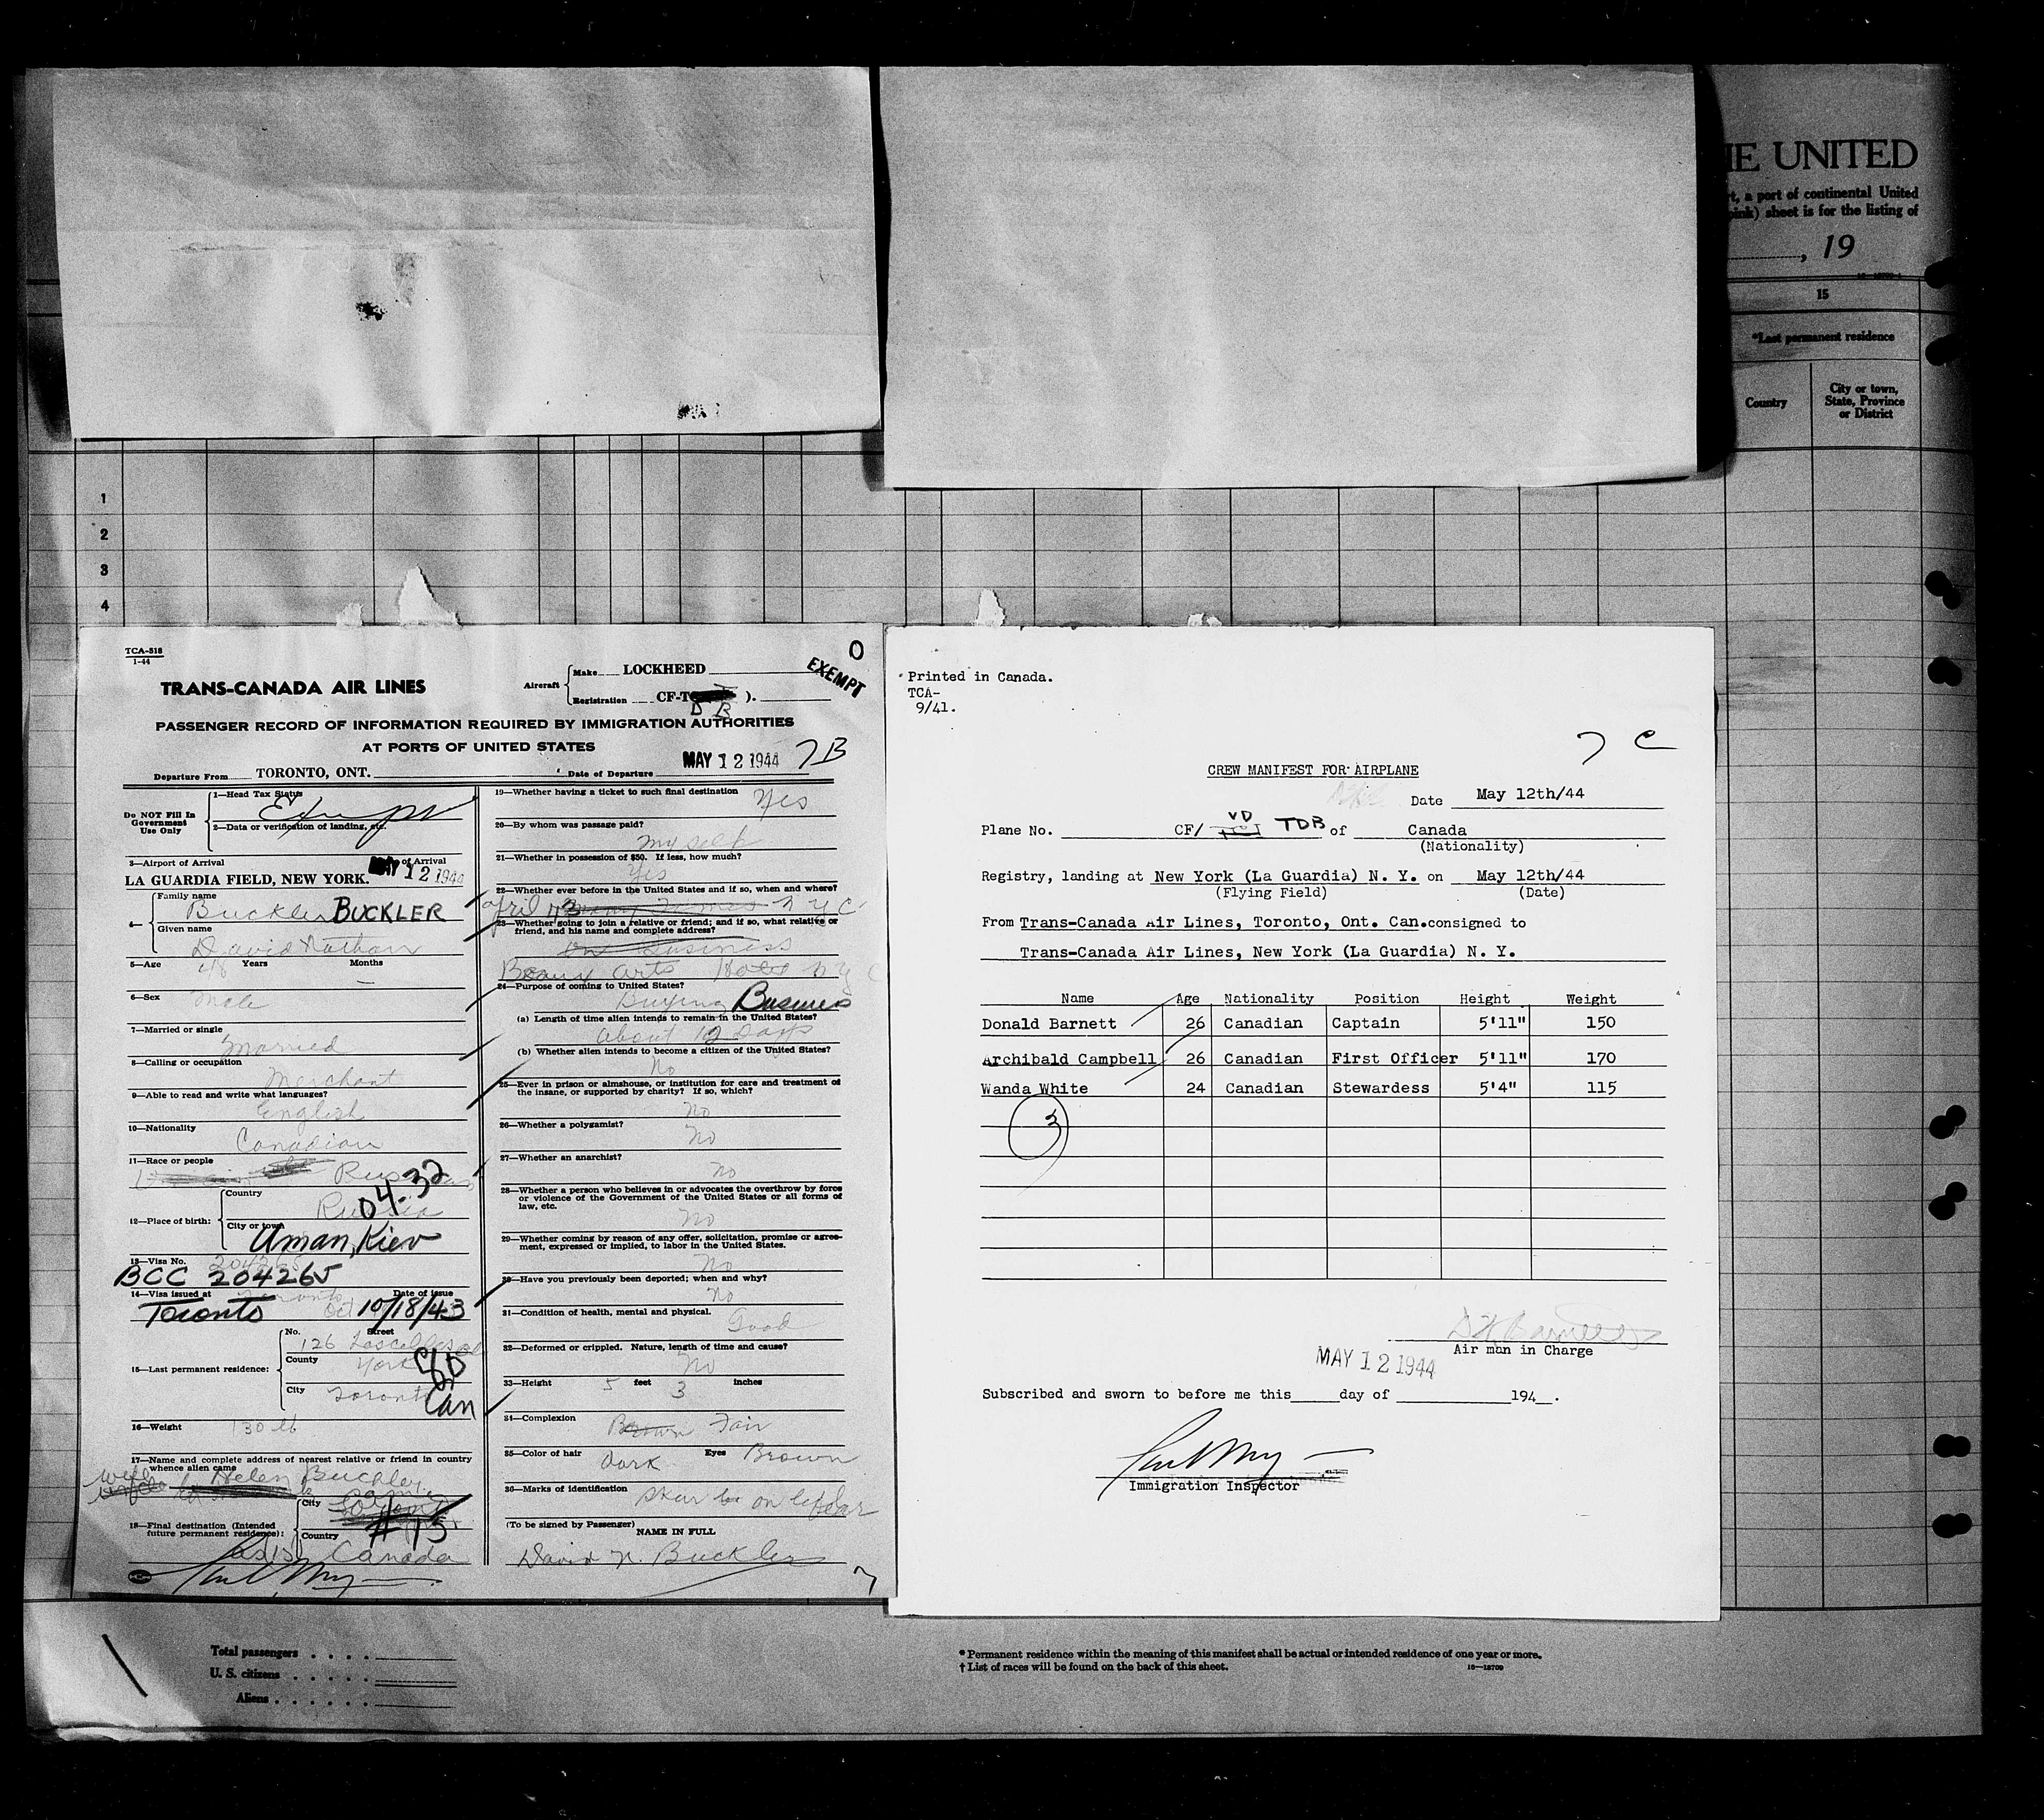 THE UNITED
rt, a port of continental United
pink) sheet is for the listing of
, 19
15
*Last permanent residence
Country
City or town, State, Province or District
1
2
3
4
TCA-518
1-44
TRANS-CANADA AIR LINES
Aircraft
Make LOCKHEED
Registration CF-T ).
D B
O
EXEMPT
PASSENGER RECORD OF INFORMATION REQUIRED BY IMMIGRATION AUTHORITIES
AT PORTS OF UNITED STATES
Departure From TORONTO, ONT. Date of Departure MAY 12 1944 7B
Do NOT Fill In Government Use Only
1—Head Tax Status
Exempt
2—Data or verification of landing, etc.
3—Airport of Arrival of Arrival
LA GUARDIA FIELD, NEW YORK. MAY 12 1944
4—
Family name
Buckler BUCKLER
Given name
David Nathan
5—Age 48 Years Months —
6—Sex Male
7—Married or single
Married
8—Calling or occupation
Merchant
9—Able to read and write what languages?
English
10—Nationality
Canadian
11—Race or people
04-32
12—Place of birth:
Country
Russia
City or town
Uman, Kiev
13—Visa No. 204265
BCC 204265
14—Visa issued at Toronto Date of issue
Toronto Oct 10/18/43
15—Last permanent residence:
No. Street
126
County
York
City
Toronto Can
16—Weight 130 lb
17—Name and complete address of nearest relative or friend in country whence alien came
wife Helen Buckley
18—Final destination (Intended future permanent residence):
City
#15
Country
as 15 Canada
19—Whether having a ticket to such final destination Yes
20—By whom was passage paid?
myself
21—Whether in possession of $50. If less, how much?
Yes
22—Whether ever before in the United States and if so, when and where?
April 43 many times N Y C
23—Whether going to join a relative or friend; and if so, what relative or friend, and his name and complete address?
on business
Beaux Arts Hotel N Y C
24—Purpose of coming to United States?
Buying Business
(a) Length of time alien intends to remain in the United States?
About 12 days
(b) Whether alien intends to become a citizen of the United States?
No
25—Ever in prison or almshouse, or institution for care and treatment of the insane, or supported by charity? If so, which?
No
26—Whether a polygamist?
No
27—Whether an anarchist?
No
28—Whether a person who believes in or advocates the overthrow by force or violence of the Government of the United States or all forms of law, etc.
No
29—Whether coming by reason of any offer, solicitation, promise or agreement, expressed or implied, to labor in the United States.
No
30—Have you previously been deported; when and why?
No
31—Condition of health, mental and physical.
Good
32—Deformed or crippled. Nature, length of time and cause?
No
33—Height 5 feet 3 inches
34—Complexion Brown Fair
35—Color of hair dark Eyes Brown
36—Marks of identification on left ear
(To be signed by Passenger)
NAME IN FULL
David N. Buckler
7
Printed in Canada.
TCA-
9/41.
7 C
CREW MANIFEST FOR AIRPLANE
Date May 12th/44
Plane No. CF/ VD TDB of Canada
(Nationality)
Registry, landing at New York (La Guardia) N. Y. on May 12th/44
(Flying Field) (Date)
From Trans-Canada Air Lines, Toronto, Ont. Can. consigned to
Trans-Canada Air Lines, New York (La Guardia) N. Y.
Name Age Nationality Position Height Weight
Donald Barnett 26 Canadian Captain 5'11" 150
Archibald Campbell 26 Canadian First Officer 5'11" 170
Wanda White 24 Canadian Stewardess 5'4" 115
3
D H Barnett
Air man in Charge
MAY 12 1944
Subscribed and sworn to before me this day of 194 .
Immigration Inspector
Total passengers . . . .
U. S. citizens . . . . .
Aliens . . . . . .
* Permanent residence within the meaning of this manifest shall be actual or intended residence of one year or more.
† List of races will be found on the back of this sheet.
16—18709